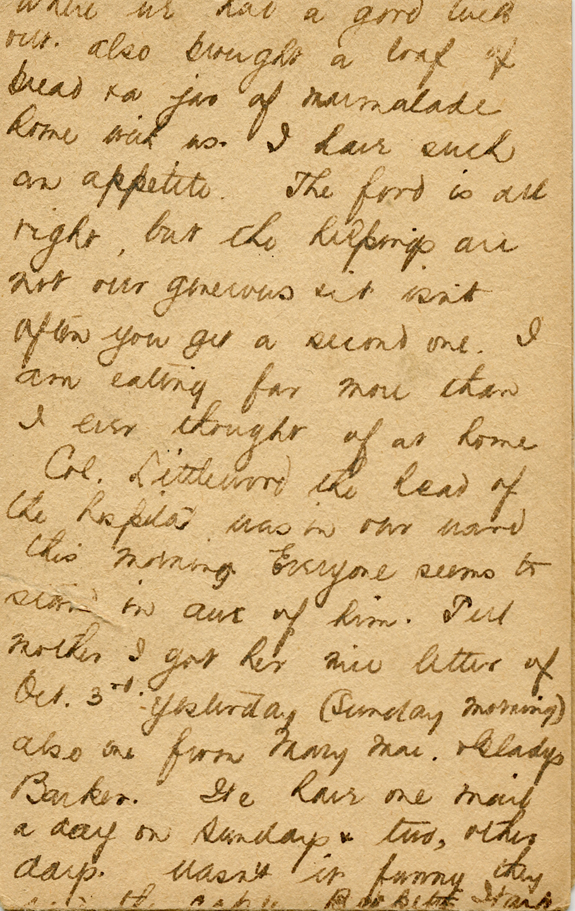 where we had a good tuck
out. also brought a loaf of
bread & a jar of marmalade
home with us. I have such
an appetite. The food is all
right, but the helpings are
not our generous & it isn't
often you get a second one. I
am eating far more than
I ever thought of at home
Col. Littlewood the head of
the hospital was in our ward
this morning Everyone seems to
stand in awe of him. Tell
mother I got her nice letter of
Oct. 3rd. yesterday (Sunday morning)
also one from Mary Mac. & Gladys
Barker. We have one mail
a day on Sundays & two, other
days. Wasn't it funny they
the